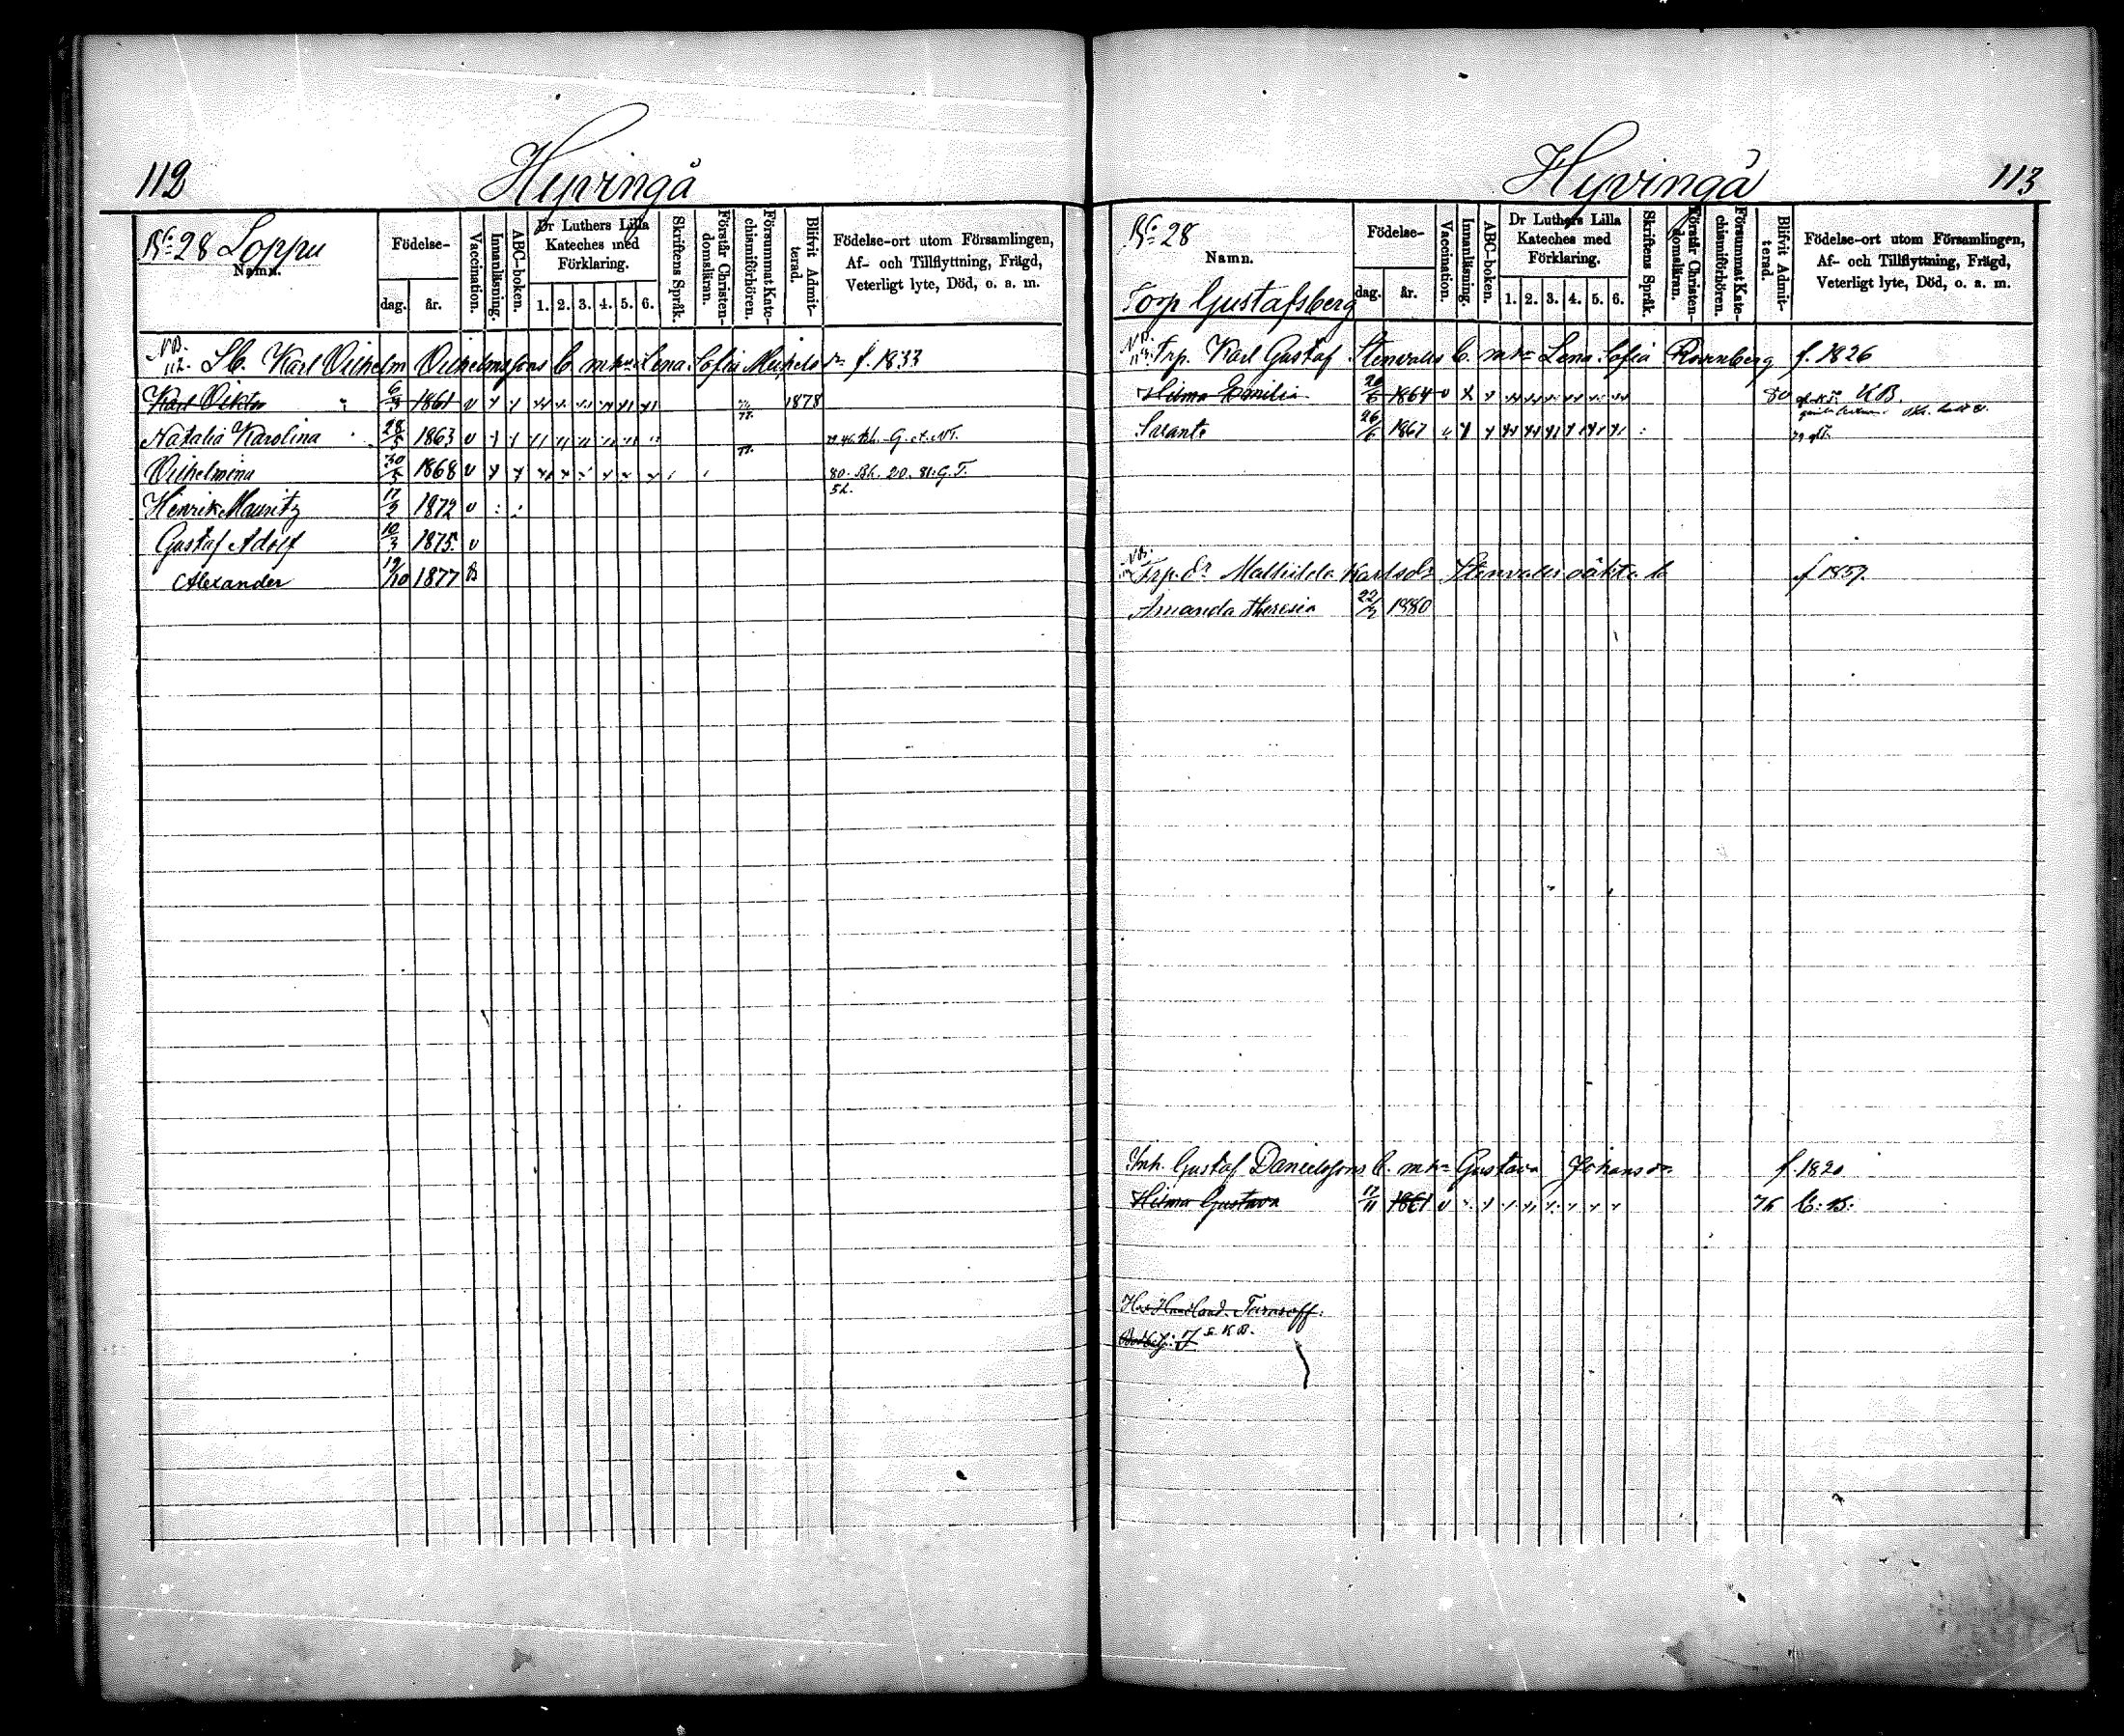 112
Hyvingå
No 28 Loppu
Namn.
Födelse-
dag.
år.
Vaccination.
Innanläsning.
ABC-boken.
Dr Luthers Lilla
Kateches med
Förklaring.
1. 2. 3. 4. 5. 6.
Skriftens Språk.
Förstår Christen-
domsläran.
Försummat Kate-
chismiförhören.
Blifvit Admit-
terad.
Födelse-ort utom Församlingen,
Af- och Tillflyttning, Frägd,
Veterligt lyte, Död, o. a. m.
NB. Karl Vilhelm Vilhelmssons b. m. h. Lena Sofia f. 1833
112.
Karl Viktor 6/3 1861 v 1878
Natalia Karolina 28/5 1863 v
Vilhelmina 30/5 1868 v 80. Bh. 20. 81. G. T.
Henrik Mauritz 17/2 1872 v
Gustaf Adolf 10/3 1875. v
Alexander 19/10 1877
113
Hyvingå
No 28
Namn.
Torp Gustafsberg
Födelse-
dag.
år.
Vaccination.
Innanläsning.
ABC-boken.
Dr Luthers Lilla
Kateches med
Förklaring.
1. 2. 3. 4. 5. 6.
Skriftens Språk.
Förstår Christen-
domsläran.
Försummat Kate-
chismiförhören.
Blifvit Admit-
terad.
Födelse-ort utom Församlingen,
Af- och Tillflyttning, Frägd,
Veterligt lyte, Död, o. a. m.
NB. Trp. Karl Gustaf Stenvalls b. m. h. Lena Sofia Rosenberg f. 1826
Hilma Emilia 1864 v 80 KB.
Savante 26/6 1867
NB.
Trp. dr Mathilda Karlsdr Stenvalls oäkta b f 1857.
Amanda Theresia 1880
Inh. Gustaf Danielssons b. m. h. Gustava Johansdr f. 1820
Hilma Gustava 17/11 1861 v 76